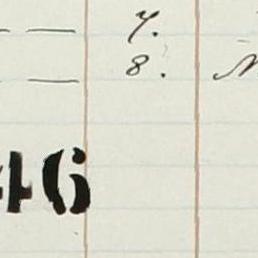 — — 7.
— 8. N
46